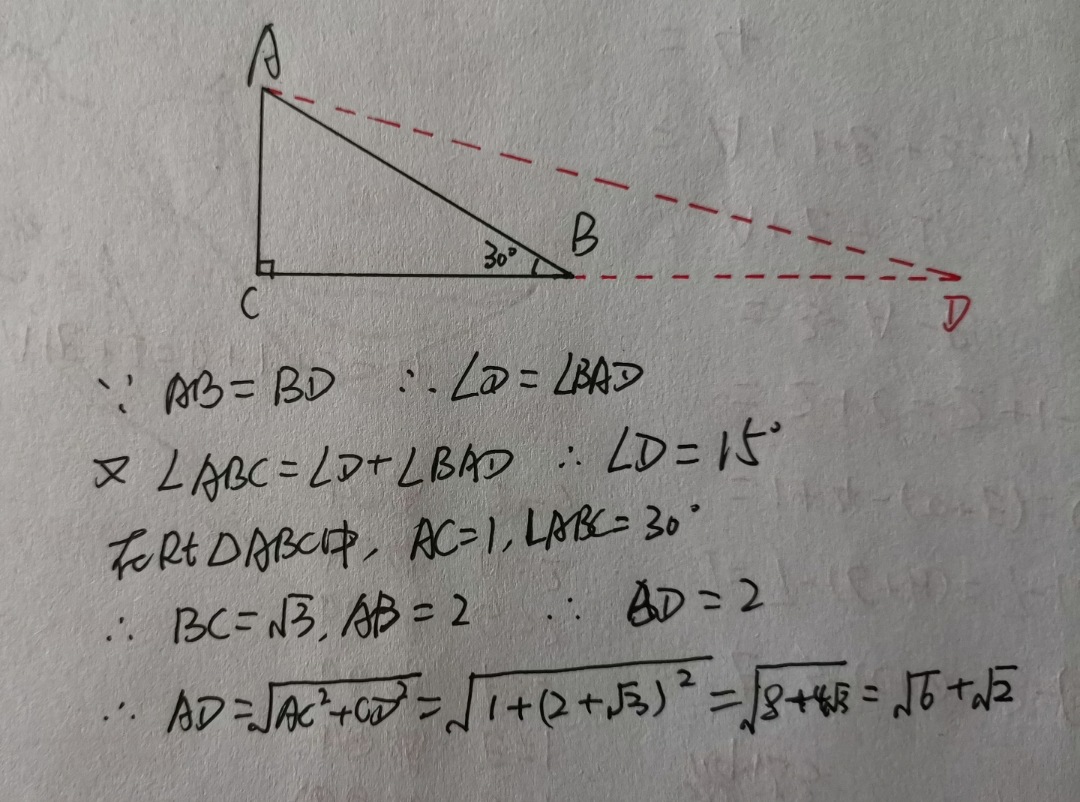 A
B
30°
C
D
∵ AB = BD ∴ ∠D = ∠BAD
又 ∠ABC = ∠D + ∠BAD ∴ ∠D = 15°
在Rt△ABC中, AC=1, ∠ABC=30°
∴ BC=√3, AB=2 ∴ BD=2
∴ AD=√(AC²+CD²)=√(1+(2+√3)²)=√(8+4√3)=√6+√2